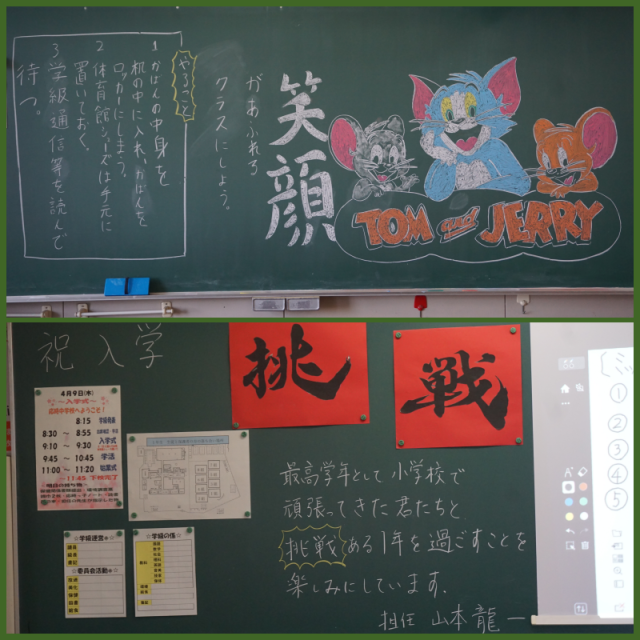 笑顔
があふれる
クラスにしよう。
やること
1 かばんの中身を
机の中に入れ、かばんを
ロッカーにしまう。
2 体育館シューズは手元に
置いておく。
3 学級通信等を読んで
待つ。
TOM and JERRY
祝 入学
挑
戦
4月9日(木)
～入学式～
8:15
8:30 ～ 8:55
9:10 ～ 9:30 入学式
9:45 ～ 10:45 学活
11:00 ～ 11:20
～11:45 下校完了
学級運営
委員会活動
学級の係
最高学年として小学校で
頑張ってきた君たちと
挑戦ある1年を過ごすことを
楽しみにしています.
担任 山本龍一
①
②
③
④
⑤